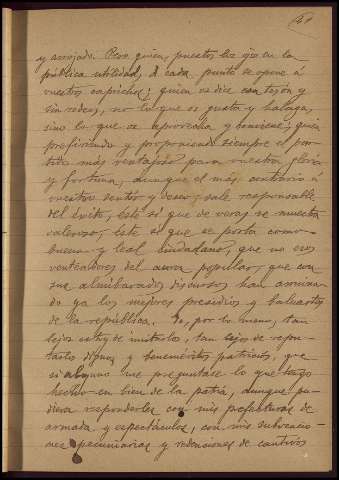 y arrojado. Pero quien, puestos los ojos en la
pública utilidad, á cada punto se opone á
vuestros caprichos; quien os dice con tesón y
sin rodeos, no lo que os gusta y halaga,
sino lo que os aprovecha y conviene; quien
prefiriendo y proponiendo siempre el par-
tido más ventajoso para vuestra gloria
y fortuna, aunque el más contrario á
vuestro sentir y deseo, sale responsable
del éxito, éste sí que de veras se muestra
valeroso; éste sí que se porta como
bueno y leal ciudadano, que no esos
venteadores del aura popular, que con
sus almibarados discursos han arruina-
do ya los mejores presidios y baluartes
de la república. Yo, por lo menos, tan
lejos estoy de imitarlos, tan lejos de repu-
tarlos dignos y beneméritos patricios, que
si alguno me preguntase lo que tengo
hecho en bien de la patria, aunque pu-
diera responderle con mis prefecturas de
armada y espectáculos, con mis subvencio-
nes pecuniarias y redenciones de cautivos